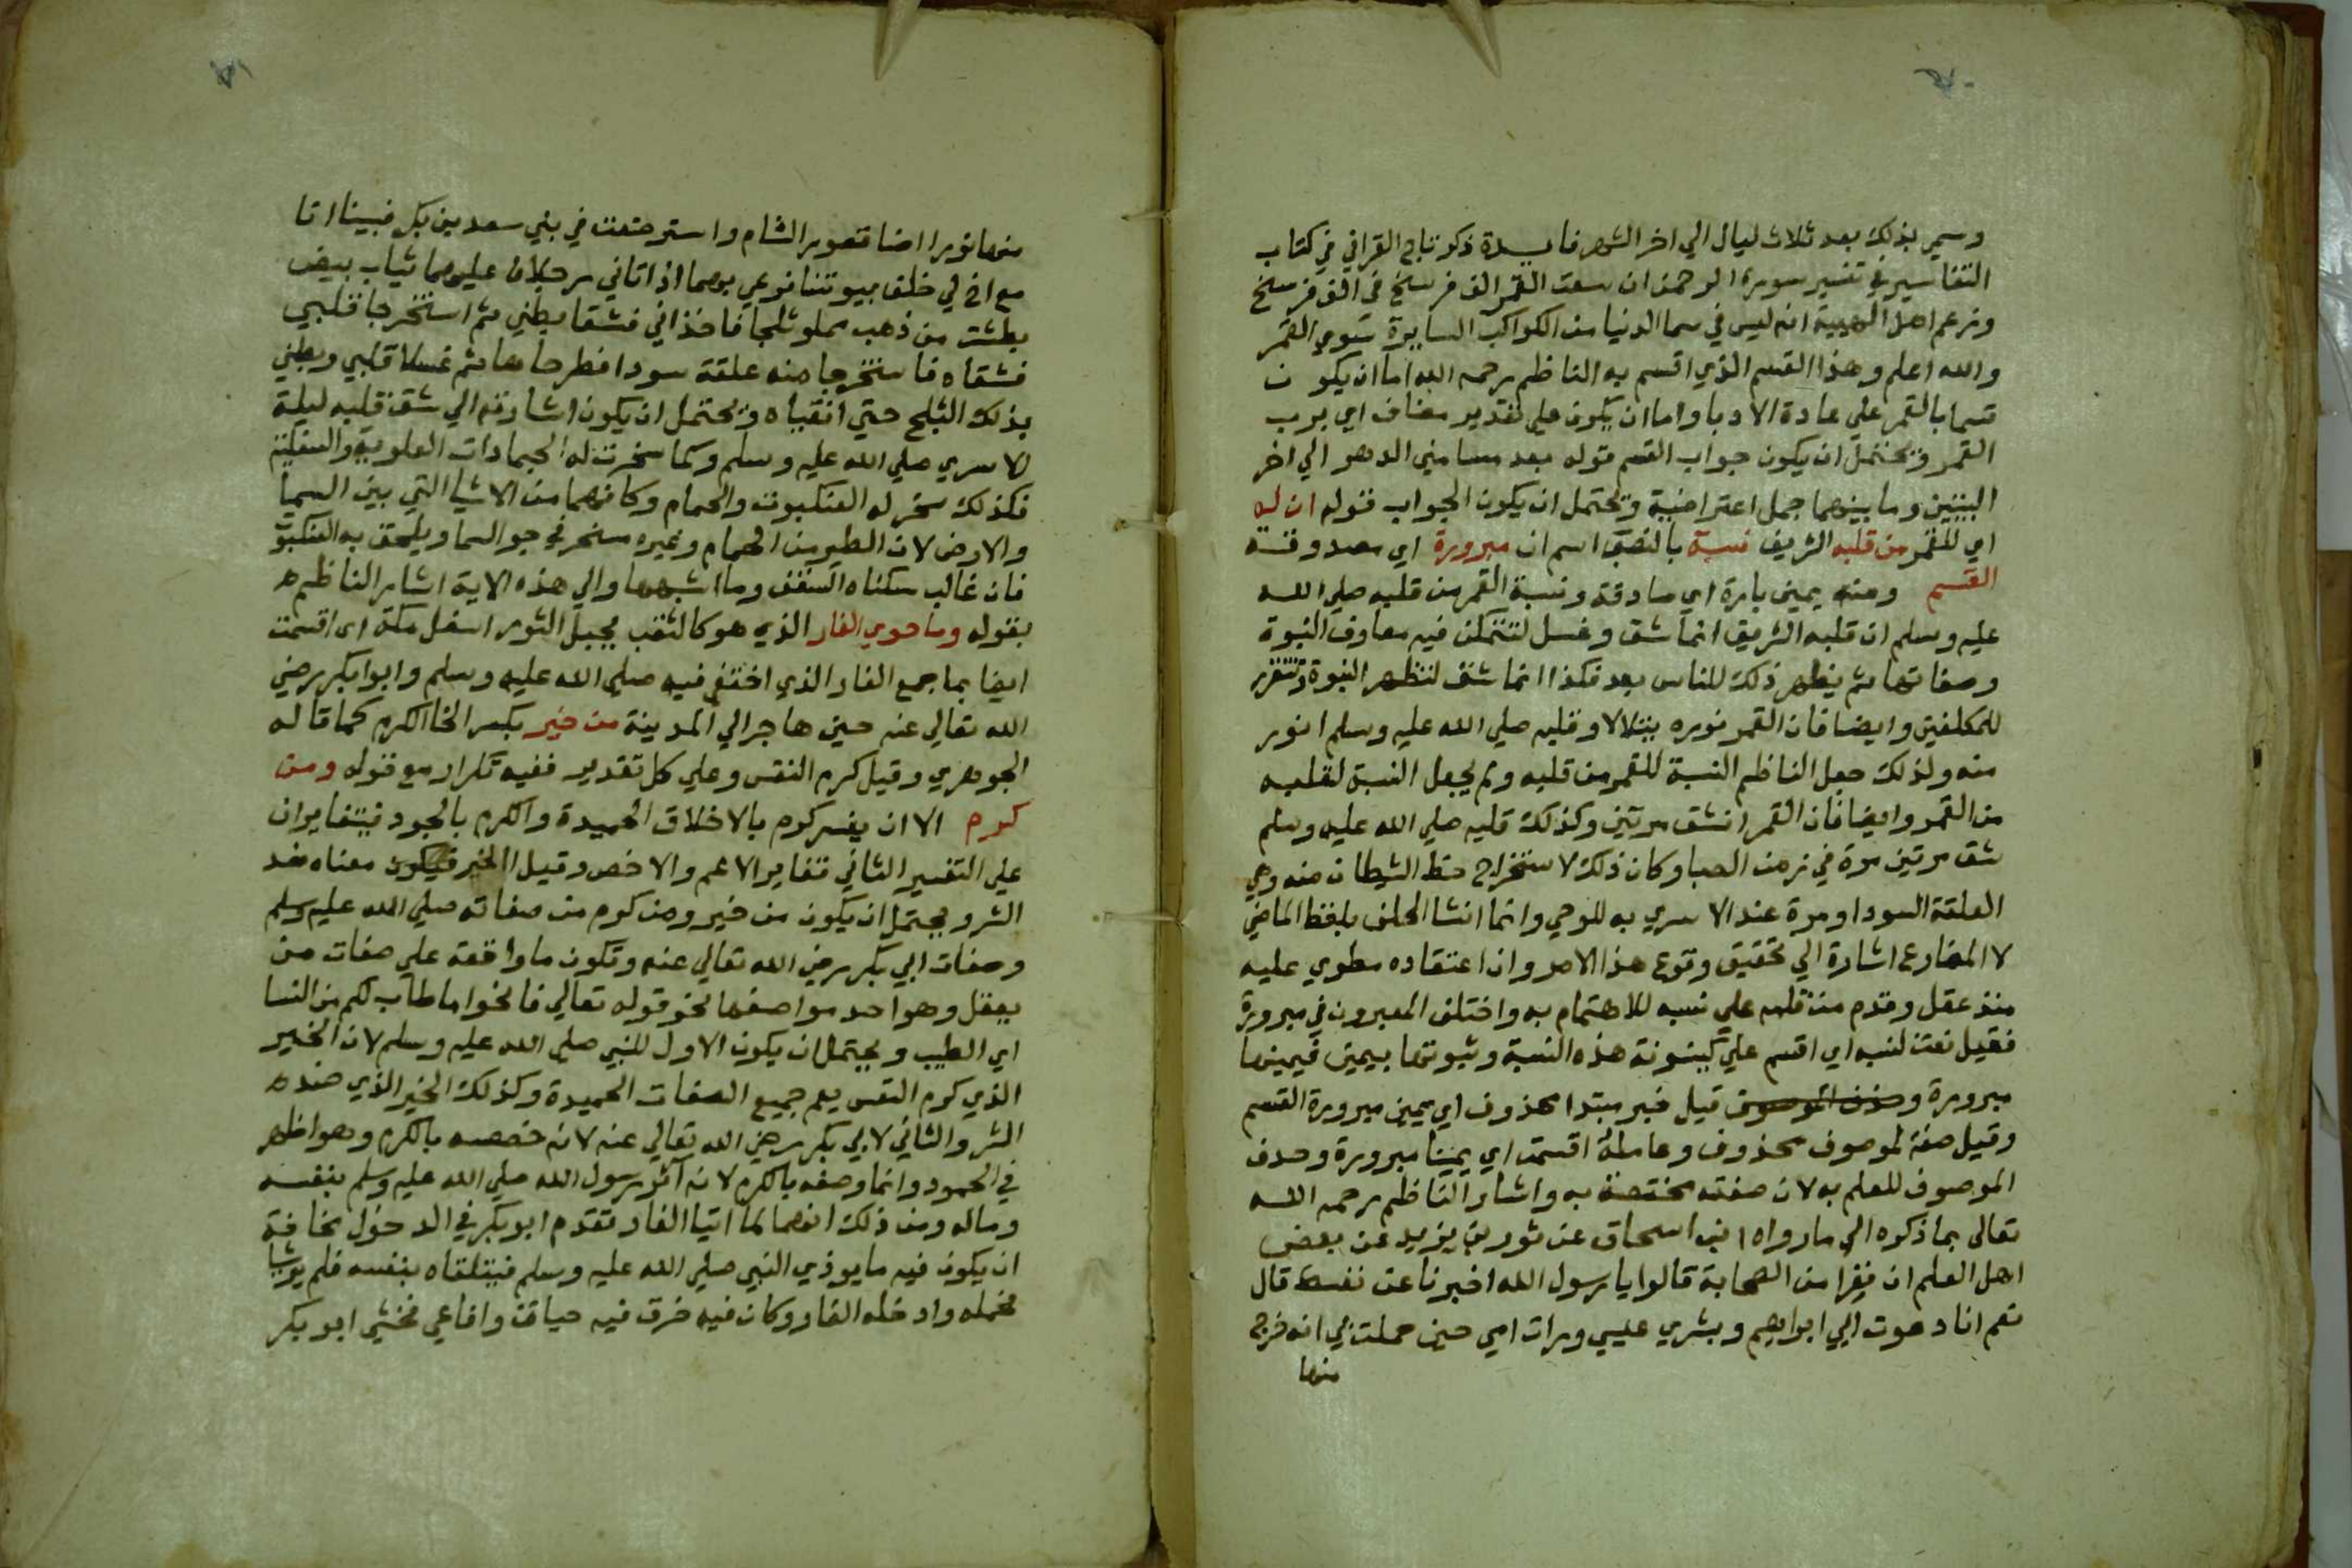 وسمي بذلك بعد ثلاث ليال الي اخر الشهر فايدة ذكر تاج القرافي في كتاب
التفاسير في تفسير سورة الرحمن ان سعت القمر الف فرسخ في الف فرسخ
وزعم اهل الهيية انه ليس في سما الدنيا من الكواكب السايرة سوي القمر
والله اعلم وهذا القسم الذي اقسم به الناظم رحمه الله اما ان يكون
قسما بالقمر علي عادة الادبا واما ان يكون علي تقدير مضاف اي برب
القمر ويحتمل ان يكون جواب القسم قوله بعد مسامني الدهر الي اخر
البيتين وما بينهما جمل اعتراضية ويحتمل ان يكون الجواب قوله ان له
اي للقمر من قلبه الشريف نسبة بالنصب اسم ان مبرورة اي مصدوقة
القسم ومنه يمين بارة اي صادقة ونسبة القمر من قلبه صلي الله
عليه وسلم ان قلبه الشريف انما شق وغسل لتتمكن فيه معارف النبوة
وصفاتها ثم يظهر ذلك للناس بعد فكذا انما شق لتظهر النبوة وتتقرر
للمكلفين وايضا فان القمر نوره يتلالا وقلبه صلي الله عليه وسلم انور
منه ولذلك جعل الناظم النسبة للقمر من قلبه ولم يجعل النسبة لقلبه
من القمر وايضا فان القمر انشق مرتين وكذلك قلبه صلي الله عليه وسلم
شق مرتين مرة في زمن الصبا وكان ذلك لاستخراج حظ الشيطان منه وهي
العلقة السودا ومرة عند الاسري به للوحي وانما انشا الحلف بلفظ الماضي
لا المضارع اشارة الي تحقيق وقوع هذا الامر وان اعتقاده مطوي عليه
منذ عقل وقدم من قلبه علي نسبه للاهتمام به واختلف المعبرون في مبرورة
فقيل نعت لنسبه اي اقسم علي كينونة هذه النسبة وثبوتها بيمين فيمينها
مبرورة وحذف الموصوف قيل خبر مبتدا محذوف اي يمين مبرورة القسم
وقيل صفة لموصوف محذوف وعامله اقسمت اي يمينا مبرورة وحذف
الموصوف للعلم به لان صفته مختصة به واشار الناظم رحمه الله
تعالي بما ذكره الي مارواه ابن اسحاق عن ثور بن يزيد عن بعض
اهل العلم ان نفرا من الصحابة قالوا يا رسول الله اخبرنا عن نفسك قال
نعم انا دعوت ابي ابراهيم وبشري عيسي ورات امي حين حملت بي انه خرج
منها
منها نور اضا قصور الشام واسترضعت في بني سعد بن بكر فبينا انا
مع اخ لي خلف بيوتنا نرعي بهما اذ اتاني رجلان عليهما ثياب بيض
بطشت من ذهب مملو ثلجا فاخذاني فشقا بطني ثم استخرجا قلبي
فشقاه فاستخرجا منه علقة سودا فطرحاها ثم غسلا قلبي وبطني
بذلك الثلج حتي انقياه ويحتمل ان يكون اشارته الي شق قلبه ليلة
الاسري صلي الله عليه وسلم وكما سخرت له الجمادات العلوية والسفلية
فكذلك سخر له العنكبوت والحمام وكانهما من الاشيا التي بين السما
والارض لان الطير من الحمام وغيره مسخر في جو السما ويلحق به العنكبوت
فان غالب سكناه السقف وما اشبهها والي هذه الاية اشار الناظم
بقوله وما حوي الغار الذي هو كالثقب بجبل الثور اسفل مكة اي اقسمت
ايضا بما جمع الغار الذي اختفي فيه صلي الله عليه وسلم وابوا بكر رضي
الله تعالي عنه حين هاجر الي المدينة من خير بكسر الخا الكرم كما قاله
الجوهري وقيل كرم النفس وعلي كل تقدير ففيه تكرار مع قوله ومن
كرم الا ان يفسر كرم بالاخلاق الحميدة والكرم بالجود فيتغايران
علي التفسير الثاني تغاير الاعم والاخص وقيل الخير فيكون معناه ضد
الشر ويحتمل ان يكون من خير ومن كرم من صفاته صلي الله عليه وسلم
وصفات ابي بكر رضي الله تعالي عنه وتكون ما واقعة علي صفات من
يعقل وهو احد مواضعها نحو قوله تعالي فانكحوا ما طاب لكم من النسا
اي الطيب ويحتمل ان يكون الاول للنبي صلي الله عليه وسلم لان الخير
الذي كرم النفس يعم جميع الصفات الحميدة وكذلك الخير الذي ضده
الشر والثاني لابي بكر رضي الله تعالي عنه لانه خصصه بالكرم وهو اظهر
في الجود وانما وصفه بالكرم لانه آثر رسول الله صلي الله عليه وسلم بنفسه
وماله ومن ذلك انهما لما اتيا الغار تقدم ابو بكر في الدخول مخافة
ان يكون فيه ما يوذي النبي صلي الله عليه وسلم فيتلقاه بنفسه فلم ير شيا
فحمله وادخله الغار وكان فيه خرق فيه حيات وافاعي فخشي ابو بكر